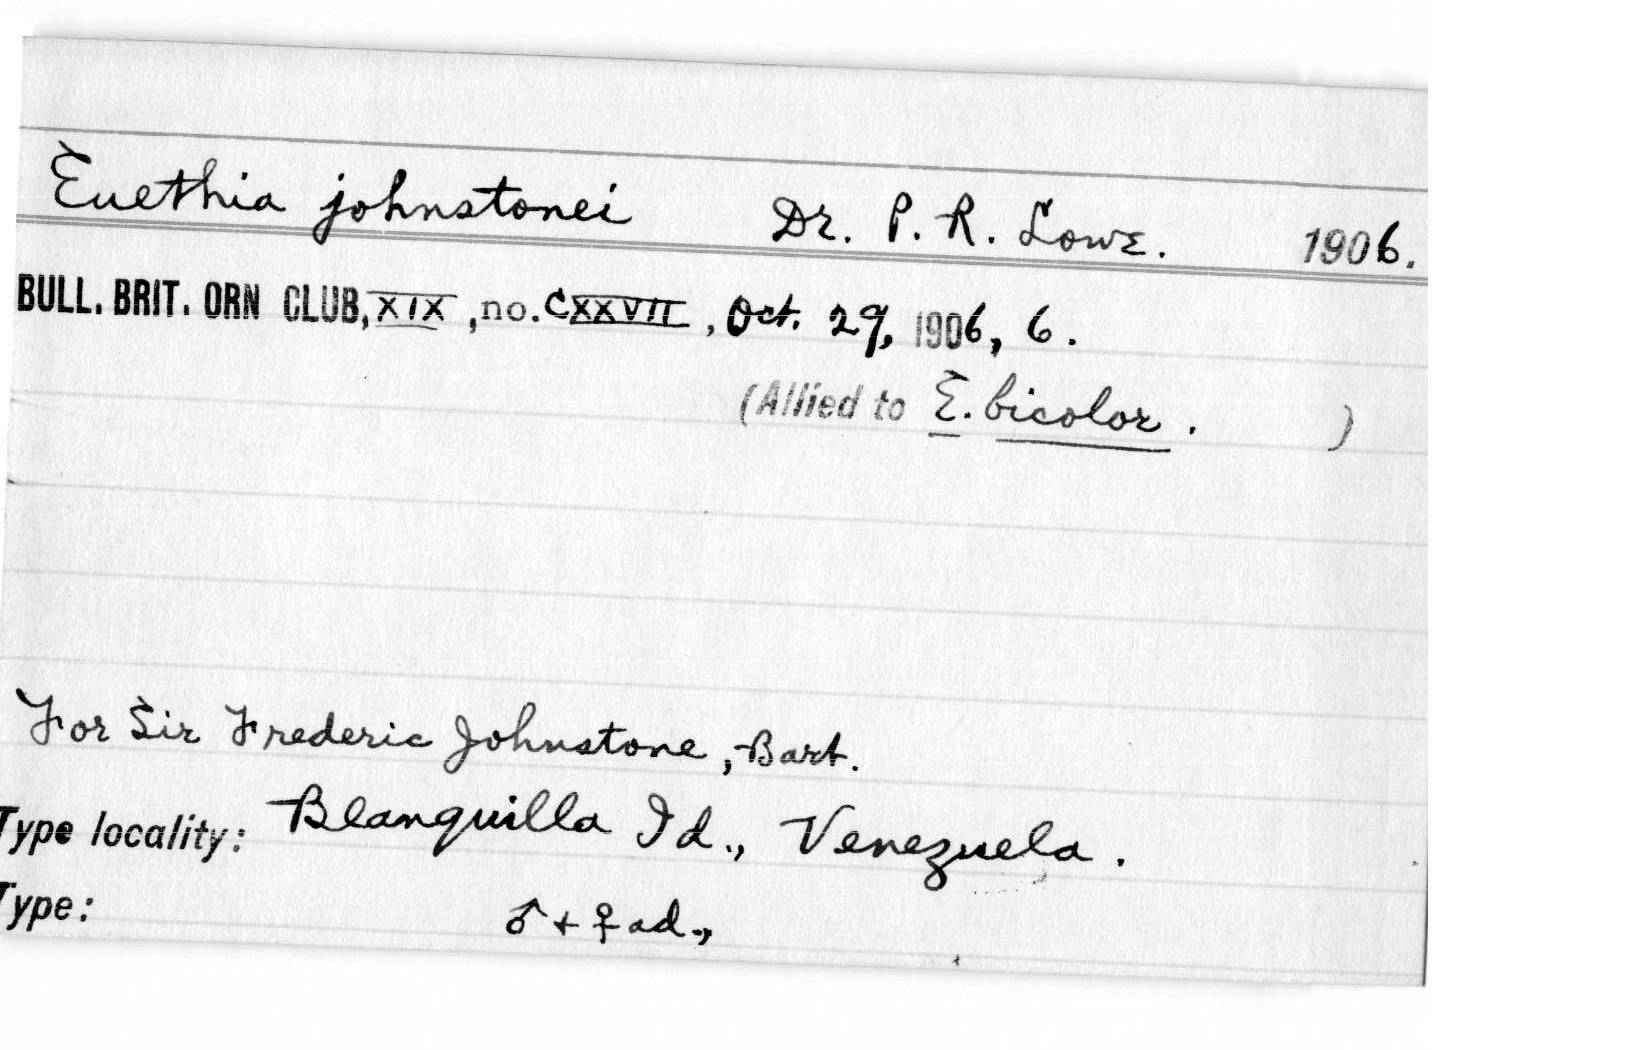 Euethia johnstonei Dr. P. R. Lowe. 1906.
BULL. BRIT. ORN CLUB, XIX, no. CXXVII, Oct. 29, 1906, 6.
(Allied to E. bicolor. )
For Sir Frederic Johnstone, Bart.
Type locality: Blanquilla Id., Venezuela.
Type: ♂ + ♀ ad.,